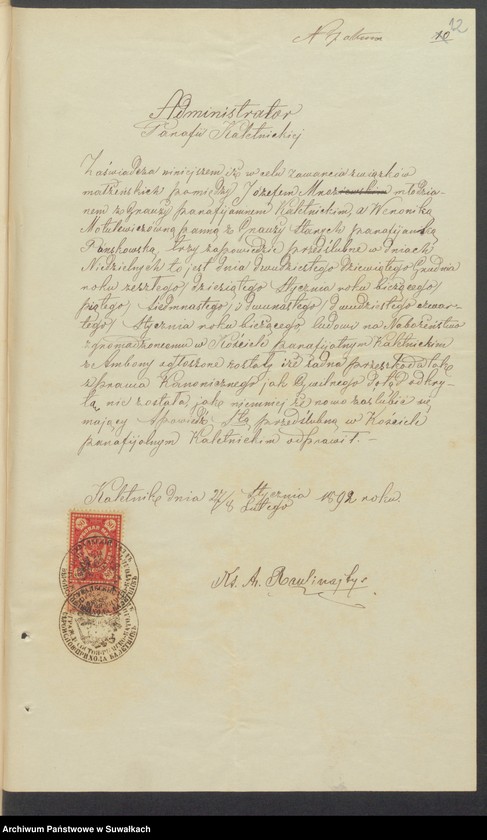 12
10
Administrator
Parafii Kaletnickiej
Zaświadcza niniejszem iż w celu zawarcia związków
małżeńskich pomiędzy Józefem młodzia-
nem z Grauży parafijannem Kaletnickim, a Weroniką
Matulewiczówną panną z Grauży Starych parafijanką
trzy zapowiedzie przedślubne w dniach
Niedzielnych to jest dnia dwudziestego dziewiątego Grudnia
roku zeszłego, dziesiątego Stycznia roku bieżącego
piątego, siedmnastego i dwunastego, dwudziestego czwar-
tego, Stycznia roku bieżącego ludowi na Nabożeństwo
zgromadzonemu w Kościele parafijalnym Kaletnickim
z Ambony ogłoszone zostały i że żadna przeszkoda tak
z prawa Kanonicznego jak Cywilnego dotąd odkry-
tą nie została, jak niemniej że nowo zaślubić się
mający Spowiedź Stą przedślubną w Kościele
parafijalnym Kaletnickim odprawił. –
Kaletnik dnia Stycznia 1892 roku
Lutego
Ks. A.
Archiwum Państwowe w Suwałkach